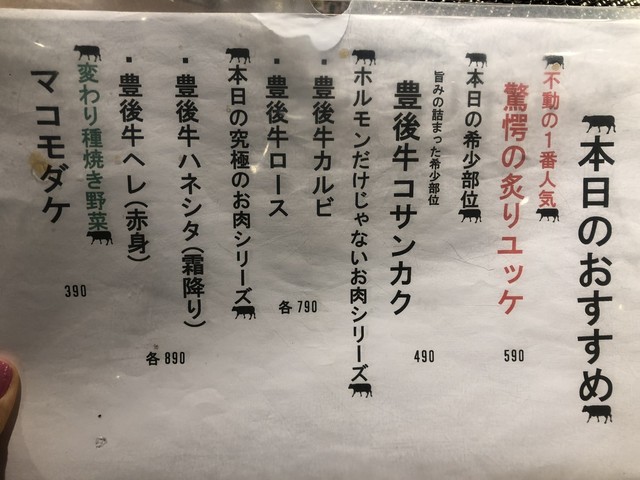 本日のおすすめ
不動の1番人気
驚愕の炙りユッケ
590
本日の希少部位
旨みの詰まった希少部位
豊後牛コサンカク
490
ホルモンだけじゃないお肉シリーズ
・豊後牛カルビ
・豊後牛ロース
各790
本日の究極のお肉シリーズ
・豊後牛ハネシタ(霜降り)
・豊後牛ヘレ(赤身)
各890
変わり種焼き野菜
マコモダケ
390